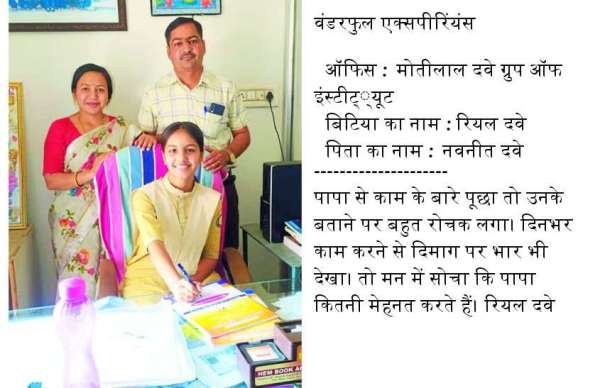 वंडरफुल एक्सपीरियंस
ऑफिस : मोतीलाल दवे ग्रुप ऑफ
इंस्टीट््यूट
बिटिया का नाम : रियल दवे
पिता का नाम : नवनीत दवे
---------------------
पापा से काम के बारे पूछा तो उनके
बताने पर बहुत रोचक लगा। दिनभर
काम करने से दिमाग पर भार भी
देखा। तो मन में सोचा कि पापा
कितनी मेहनत करते हैं। रियल दवे
HEM BOOK